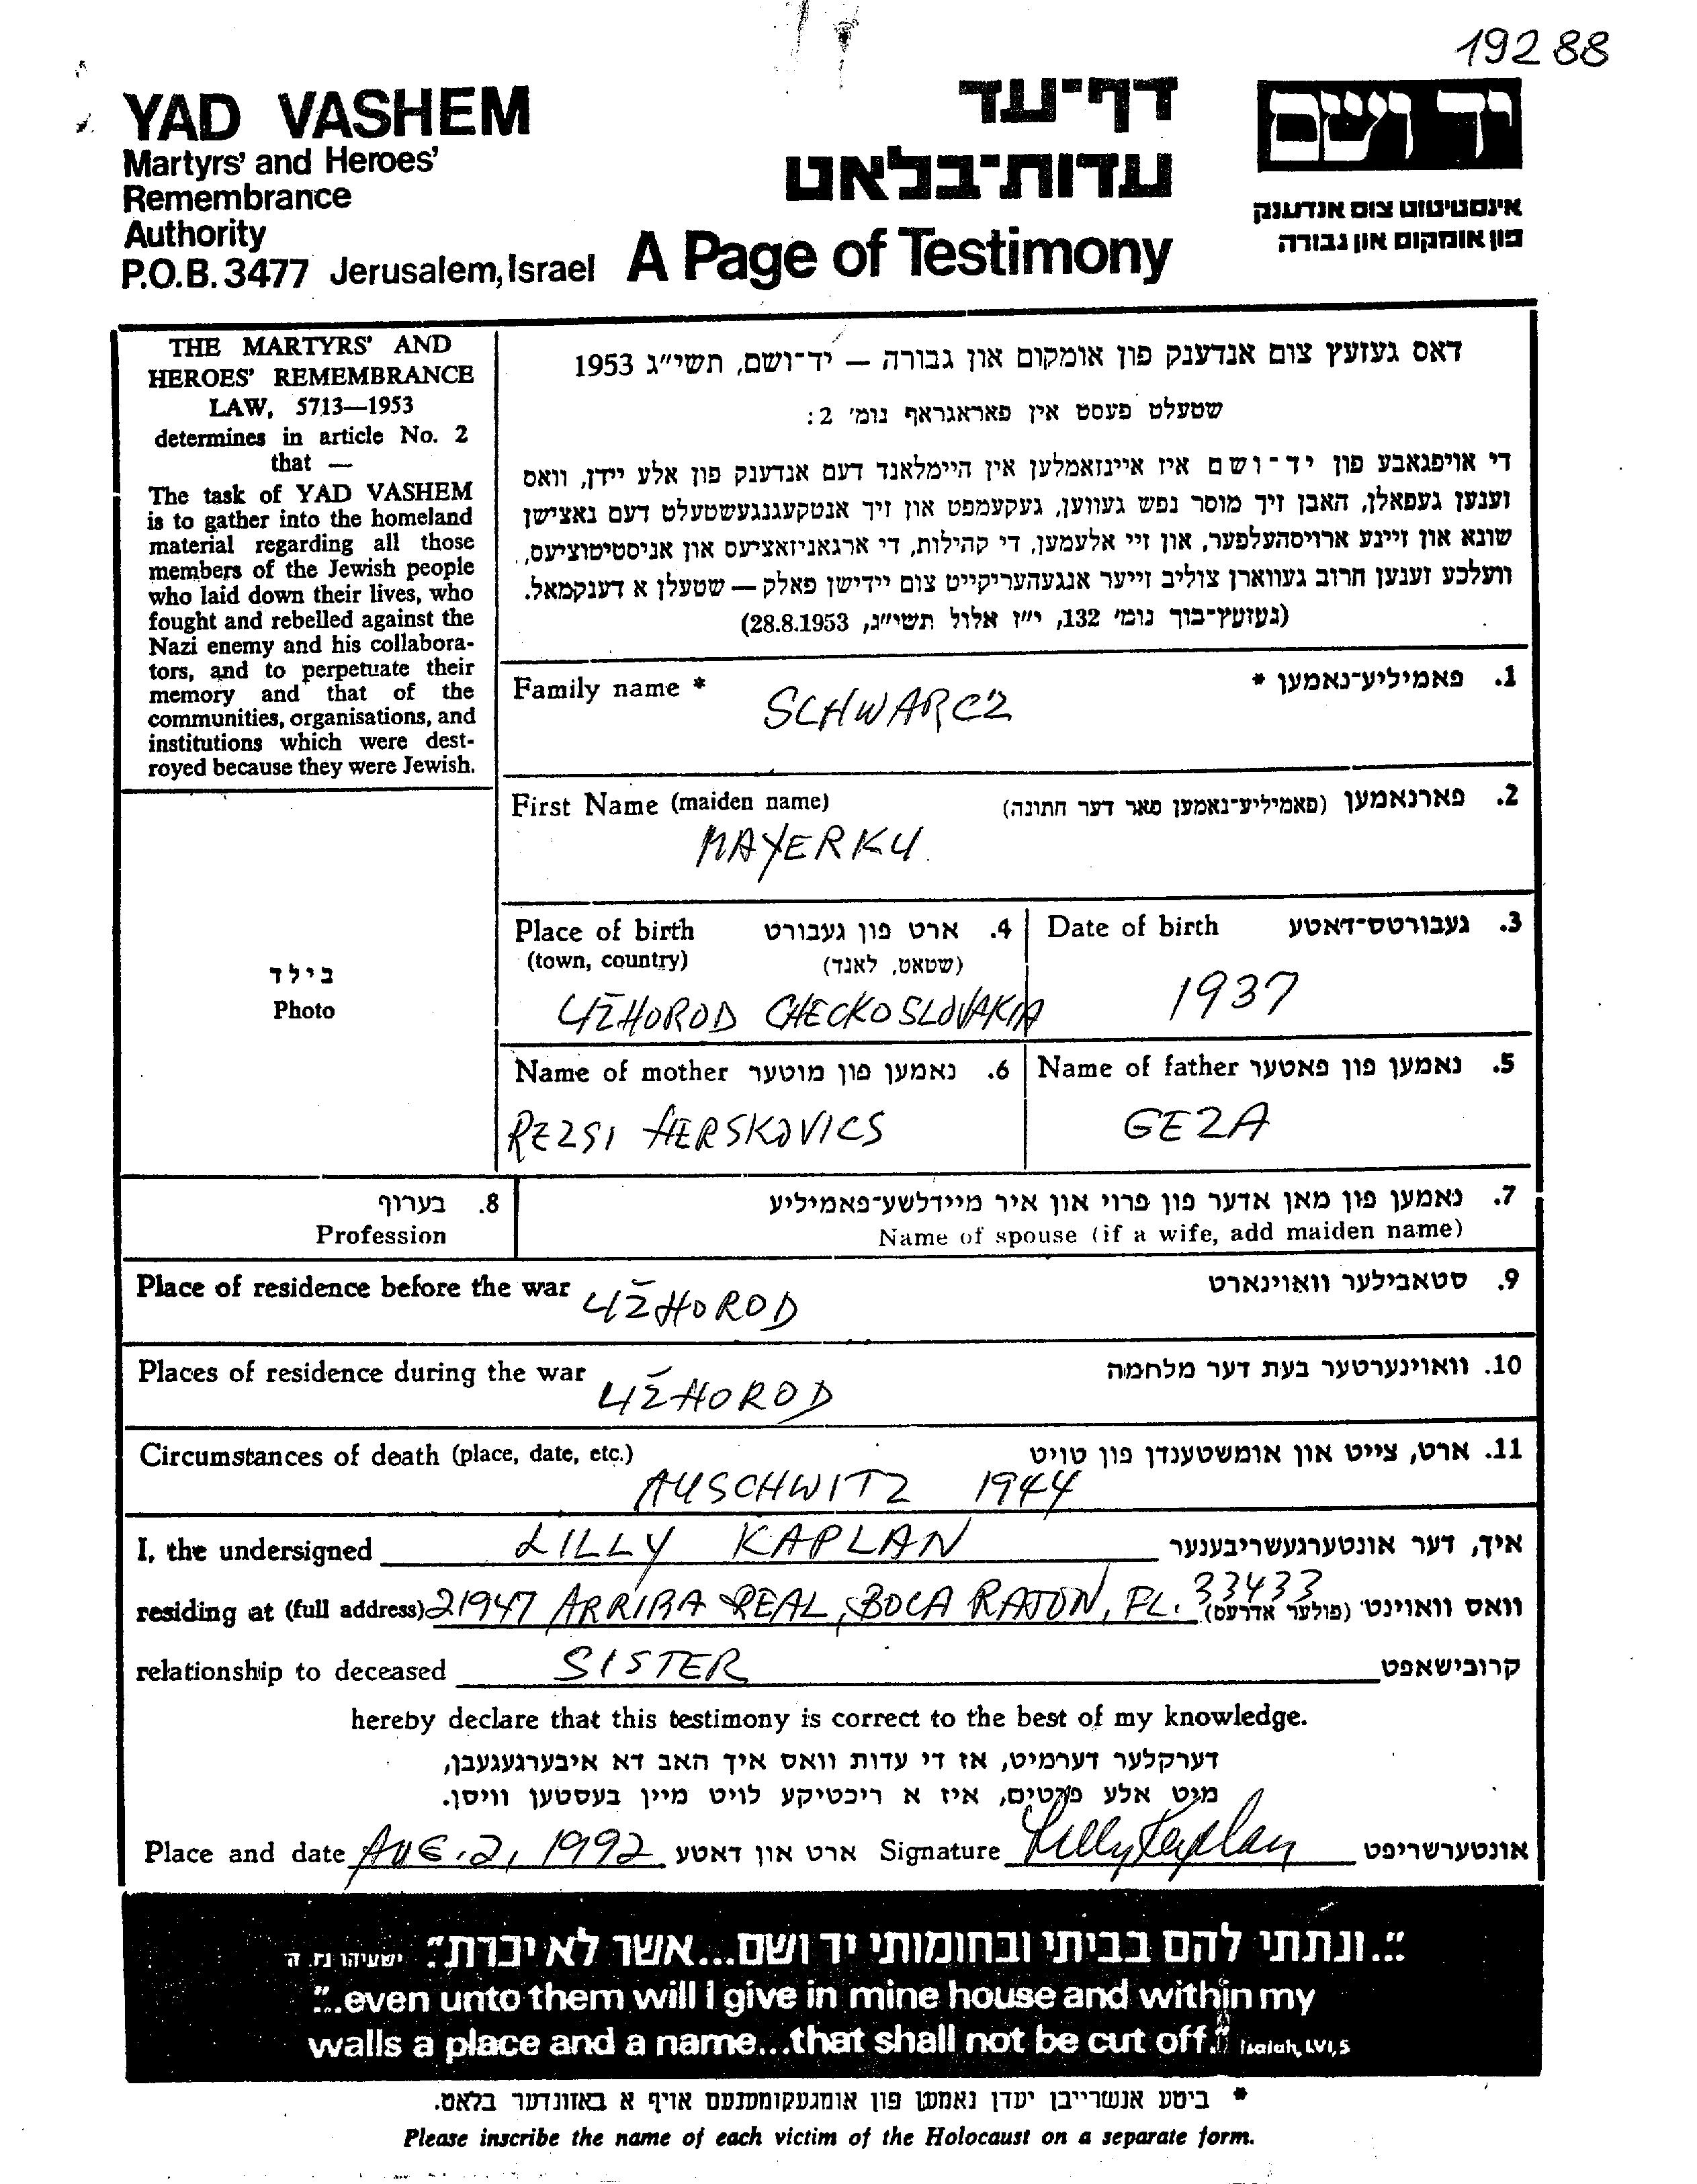 19288
YAD VASHEM
Martyrs' and Heroes'
Remembrance
Authority
P.O.B. 3477 Jerusalem, Israel
דף־עד
עדות־בלאט
A Page of Testimony
יד ושם
אינסטיטוט צום אנדענק
פון אומקום און גבורה
THE MARTYRS' AND
HEROES' REMEMBRANCE
LAW, 5713—1953
determines in article No. 2
that —
The task of YAD VASHEM
is to gather into the homeland
material regarding all those
members of the Jewish people
who laid down their lives, who
fought and rebelled against the
Nazi enemy and his collabora-
tors, and to perpetuate their
memory and that of the
communities, organisations, and
institutions which were dest-
royed because they were Jewish.
דאס געזעץ צום אנדענק פון אומקום און גבורה — יד־ושם, תשי״ג 1953
שטעלט פעסט אין פאראגראף נומ׳ 2:
די אויפגאבע פון יד־ושם איז איינזאמלען אין היימלאנד דעם אנדענק פון אלע יידן, וואס
זענען געפאלן, האבן זיך מוסר נפש געווען, געקעמפט און זיך אנטקעגנגעשטעלט דעם נאצישן
שונא און זיינע ארויסהעלפער, און זיי אלעמען, די קהילות, די ארגאניזאציעס און אניסטיטוציעס,
וועלכע זענען חרוב געווארן צוליב זייער אנגעהעריקייט צום יידישן פאלק — שטעלן א דענקמאל.
(געזעץ־בוך נומ׳ 132, י״ז אלול תשי״ג, 28.8.1953)
Family name * 1. פאמיליע־נאמען *
SCHWARCZ
First Name (maiden name) 2. פארנאמען (פאמיליע־נאמען פאר דער חתונה)
MAYERKU
Place of birth 4. ארט פון געבורט
(town, country) (שטאט, לאנד)
UŽHOROD CHECKOSLOVAKIA
Date of birth 3. געבורטס־דאטע
1937
בילד
Photo
Name of mother 6. נאמען פון מוטער
REZSI HERSKOVICS
Name of father 5. נאמען פון פאטער
GEZA
8. בערוף
Profession
7. נאמען פון מאן אדער פון פרוי און איר מיידלשע־פאמיליע
Name of spouse (if a wife, add maiden name)
Place of residence before the war UŽHOROD 9. סטאבילער וואוינארט
Places of residence during the war UŽHOROD 10. וואוינערטער בעת דער מלחמה
Circumstances of death (place, date, etc.) 11. ארט, צייט און אומשטענדן פון טויט
AUSCHWITZ 1944
I, the undersigned LILLY KAPLAN איך, דער אונטערגעשריבענער
residing at (full address) 21947 ARRIBA REAL, BOCA RATON, FL. 33433 וואס וואוינט (פולער אדרעס)
relationship to deceased SISTER קרובישאפט
hereby declare that this testimony is correct to the best of my knowledge.
דערקלער דערמיט, אז די עדות וואס איך האב דא איבערגעגעבן,
מיט אלע פרטים, איז א ריכטיקע לויט מיין בעסטען וויסן.
Place and date AUG. 2, 1992 ארט און דאטע Signature Lilly Kaplan אונטערשריפט
"...ונתתי להם בביתי ובחומותי יד ושם...אשר לא יכרת" ישעיהו נו, ה
"...even unto them will I give in mine house and within my
walls a place and a name...that shall not be cut off." Isaiah, LVI, 5
* ביטע אנשרייבן יעדן נאמען פון אומגעקומענעם אויף א באזונדער בלאט.
Please inscribe the name of each victim of the Holocaust on a separate form.